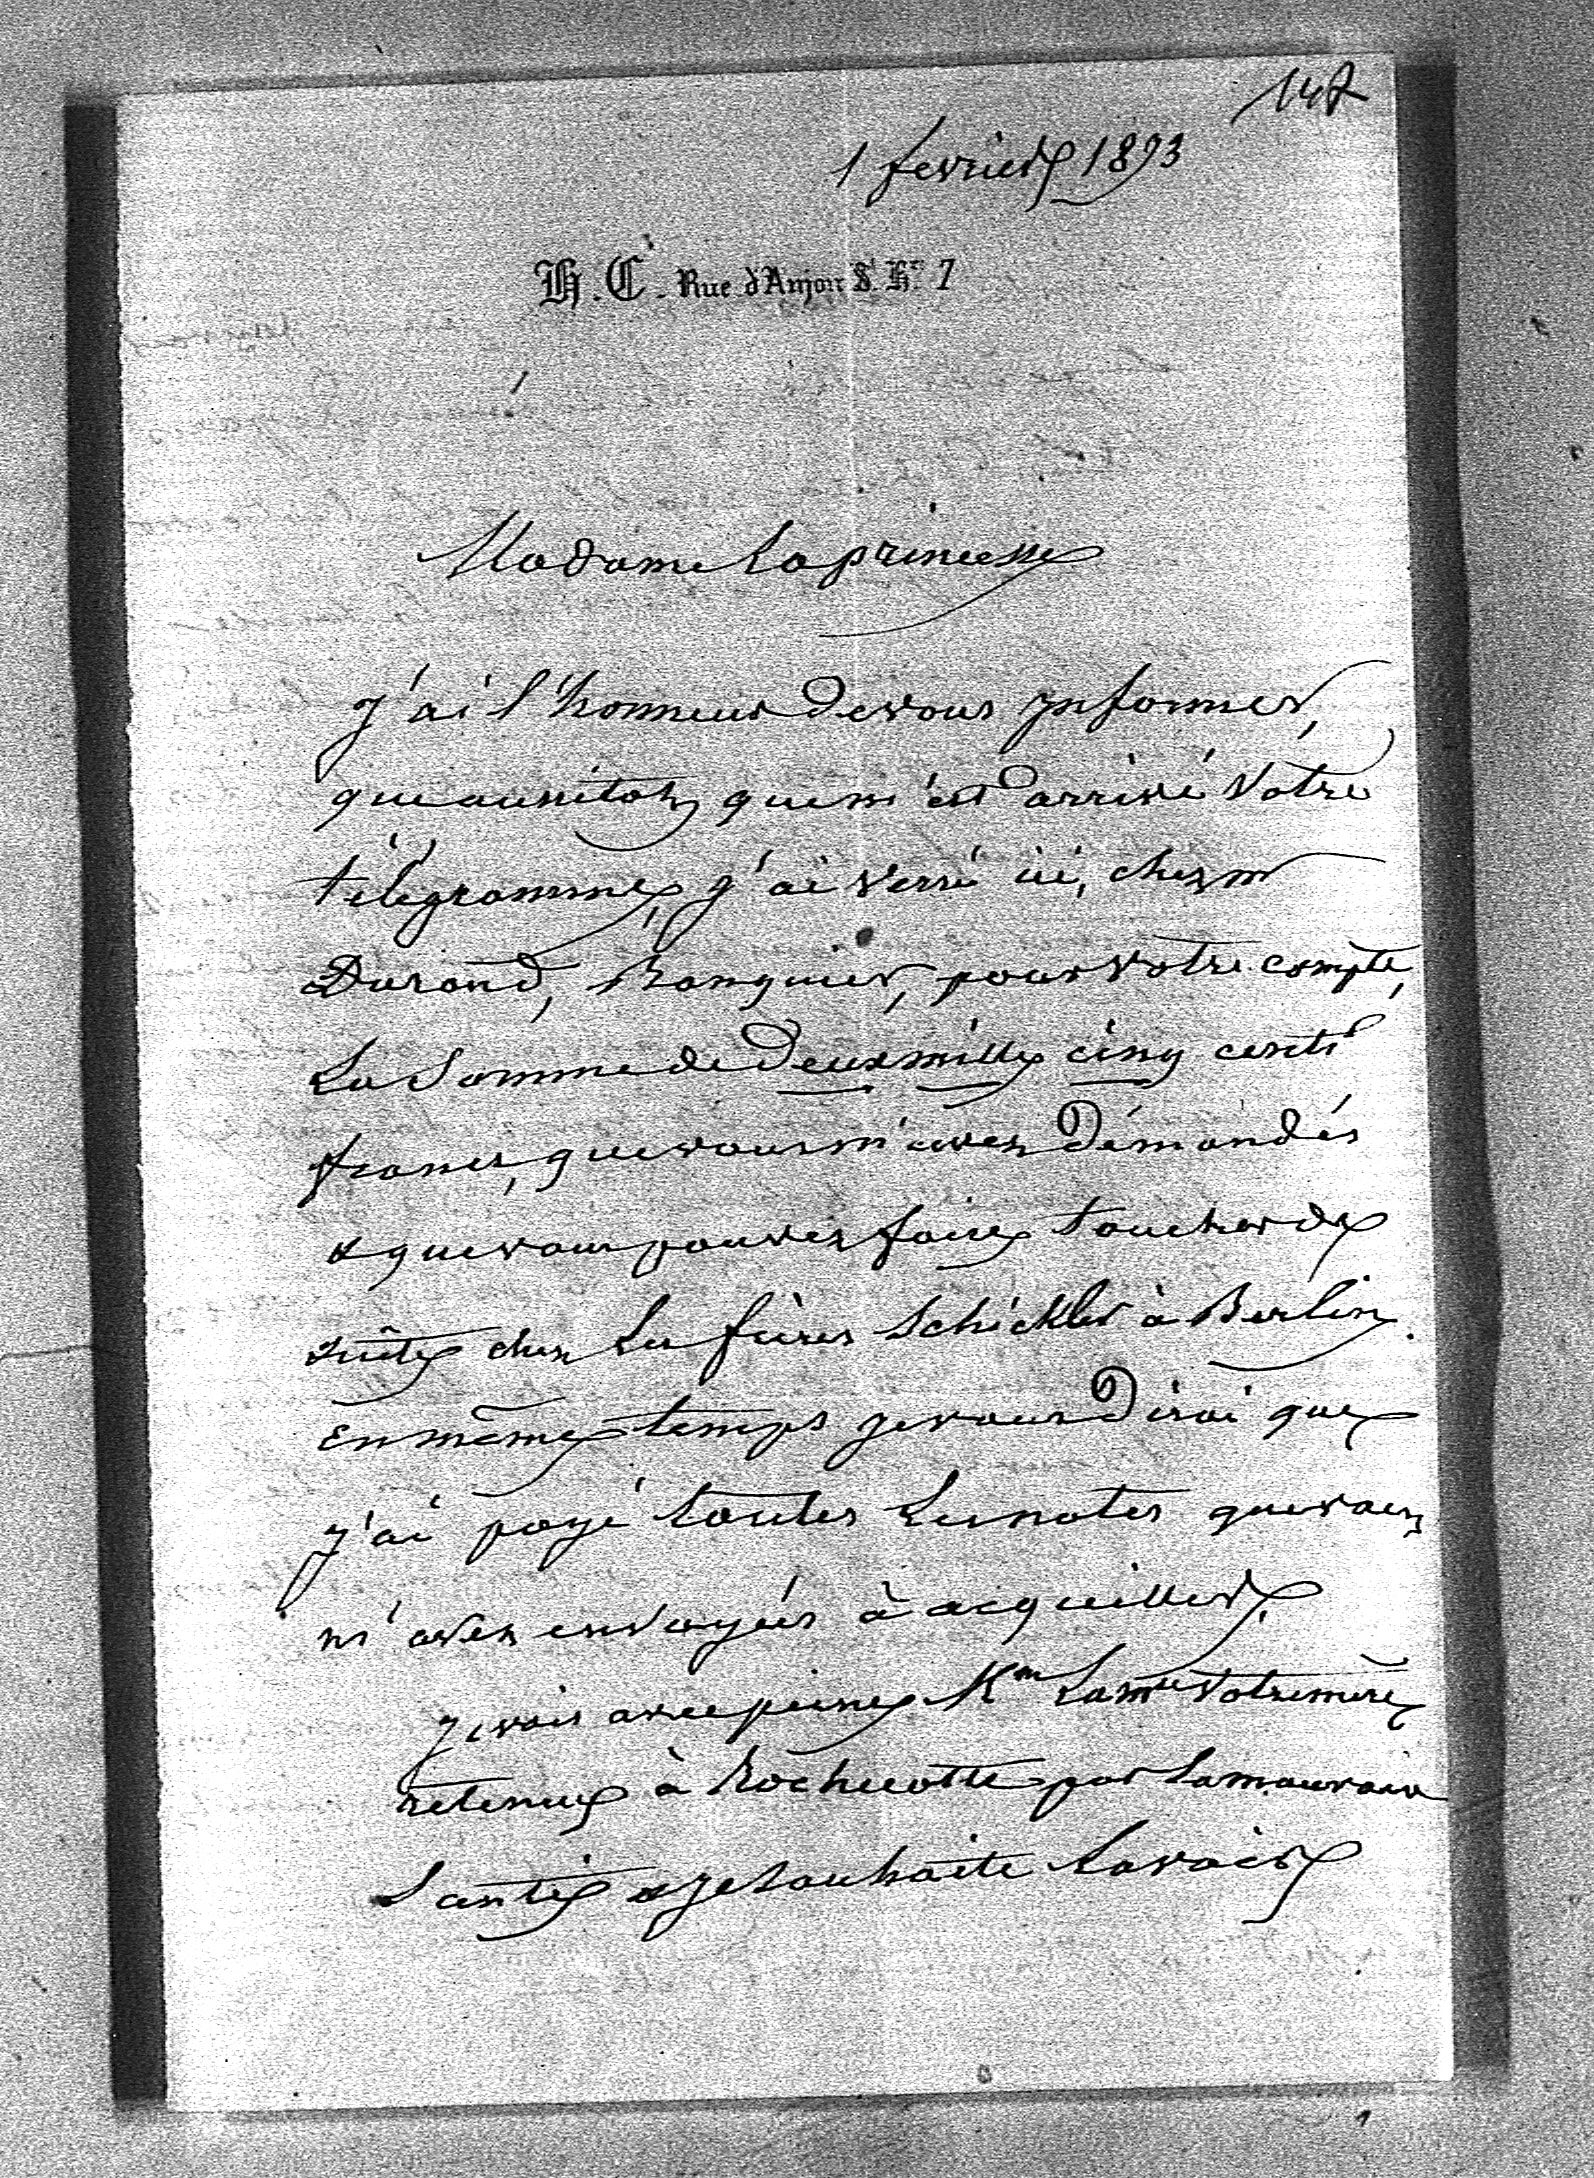 147
1 fevrier 1893
H. C. Rue d'Anjou St. Hré 7
Madame la princesse
J'ai l'honneur de vous informer,
que aussitot que m'est arrivé votre
télégramme, j'ai versé ici, chez m
Durand, Banquier, pour votre compte,
La Somme de deux mille cinq cents
francs, que vous m'avez démandés
& que vous pouvez faire toucher de
suite chez les frères Schickler à Berlin.
En même temps je vous dirai que
j'ai payé toutes les notes que vous
m'avez envoyées à acquitter.
Je vois avec peine Mme la mise votre mère
retenue à Rochecotte par la mauvaise
Santé & je souhaite la voir